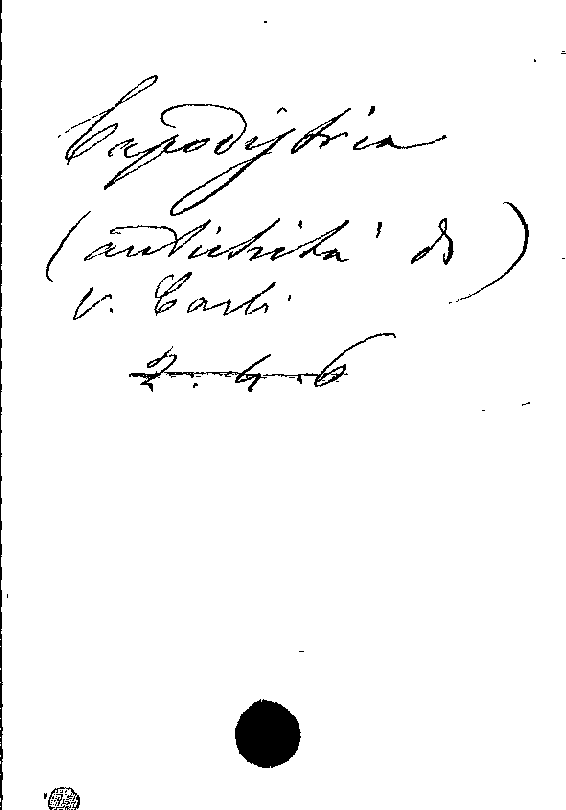 Capodistria
(antichità di)
V. Carli.
2. 4. 6